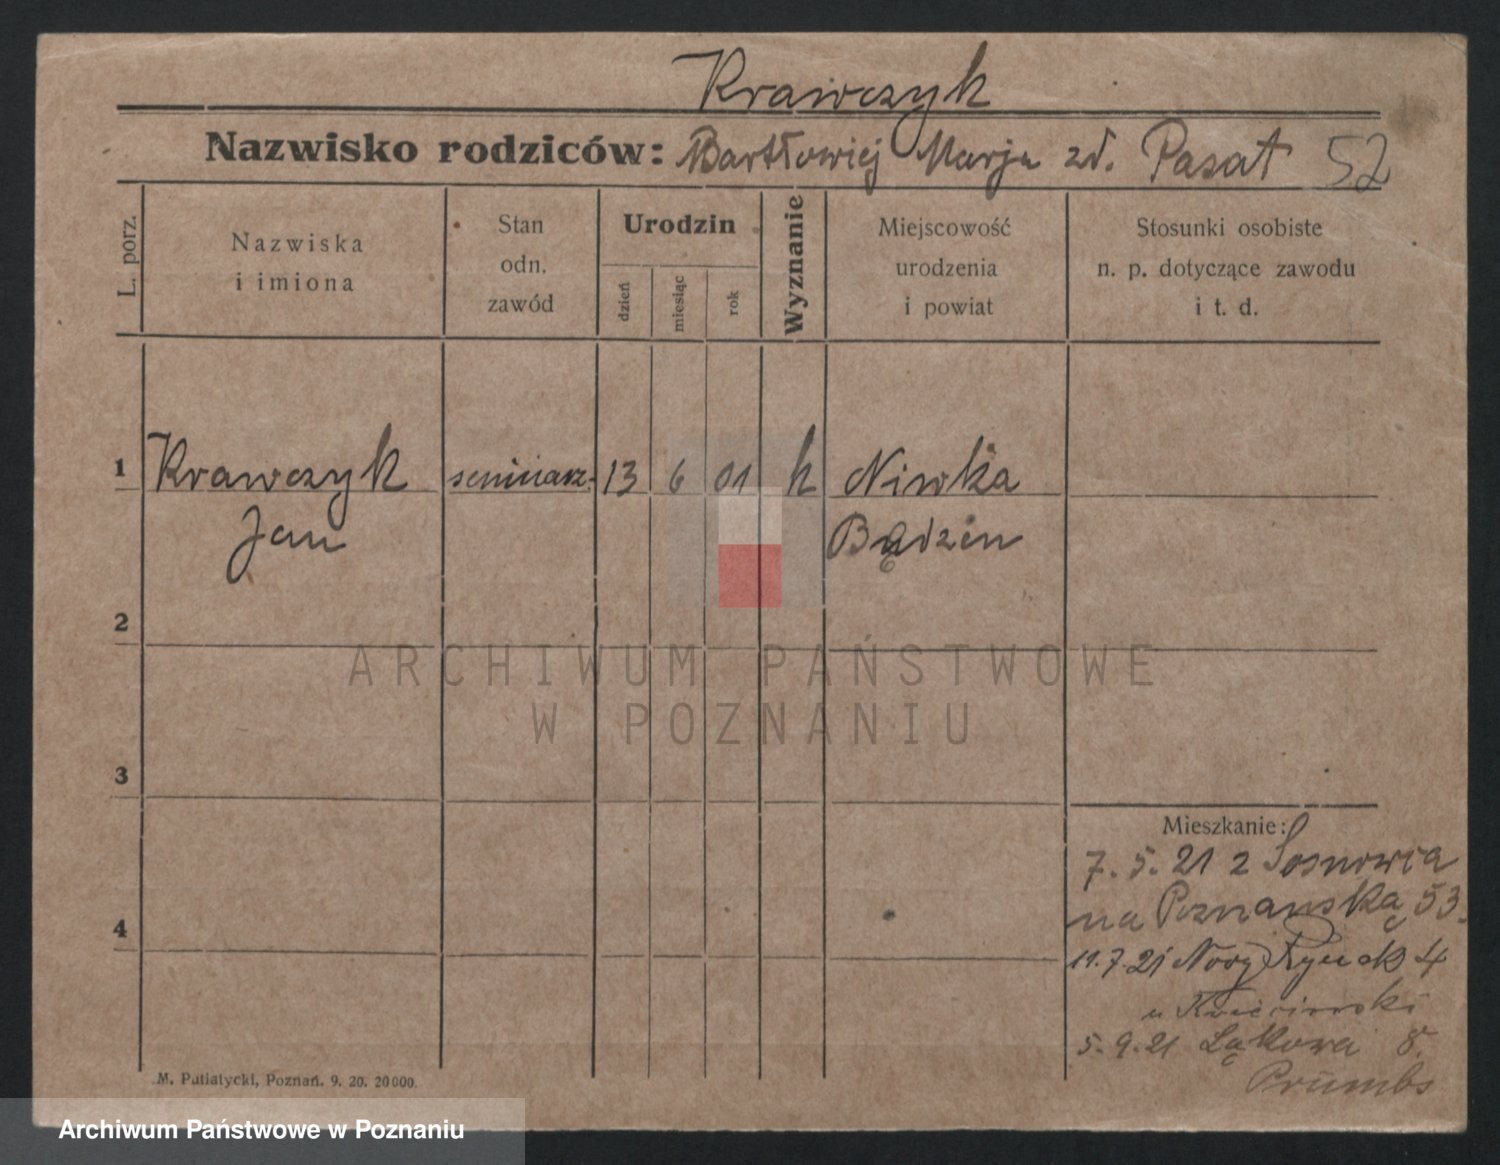 Krawczyk
Nazwisko rodziców: Bartłomiej Marja zd. Pasat 52
L. porz.
Nazwiska
i imiona
Stan
odn.
zawód
Urodzin
dzień
miesiąc
rok
Wyznanie
Miejscowość
urodzenia
i powiat
Stosunki osobiste
n. p. dotyczące zawodu
i t. d.
1 Krawczyk seminarz. 13 6 01 k Niwka
Jan Będzin
2
ARCHIWUM PAŃSTWOWE
W POZNANIU
3
Mieszkanie:
7. 5. 21 z Sosnowca
na Poznańską 53.
4
11. 7. 21 Nowy Rynek 4
u
5. 9. 21 Łąkowa 8.
Prümbs
M. Putiatycki, Poznań. 9. 20. 20000.
Archiwum Państwowe w Poznaniu